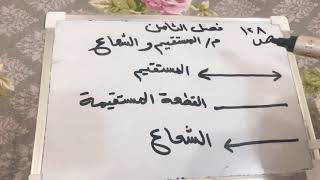 فصل الثامن
ص ١٢٨
م/ المستقيم والشعاع
المستقيم
القطعة المستقيمة
الشعاع